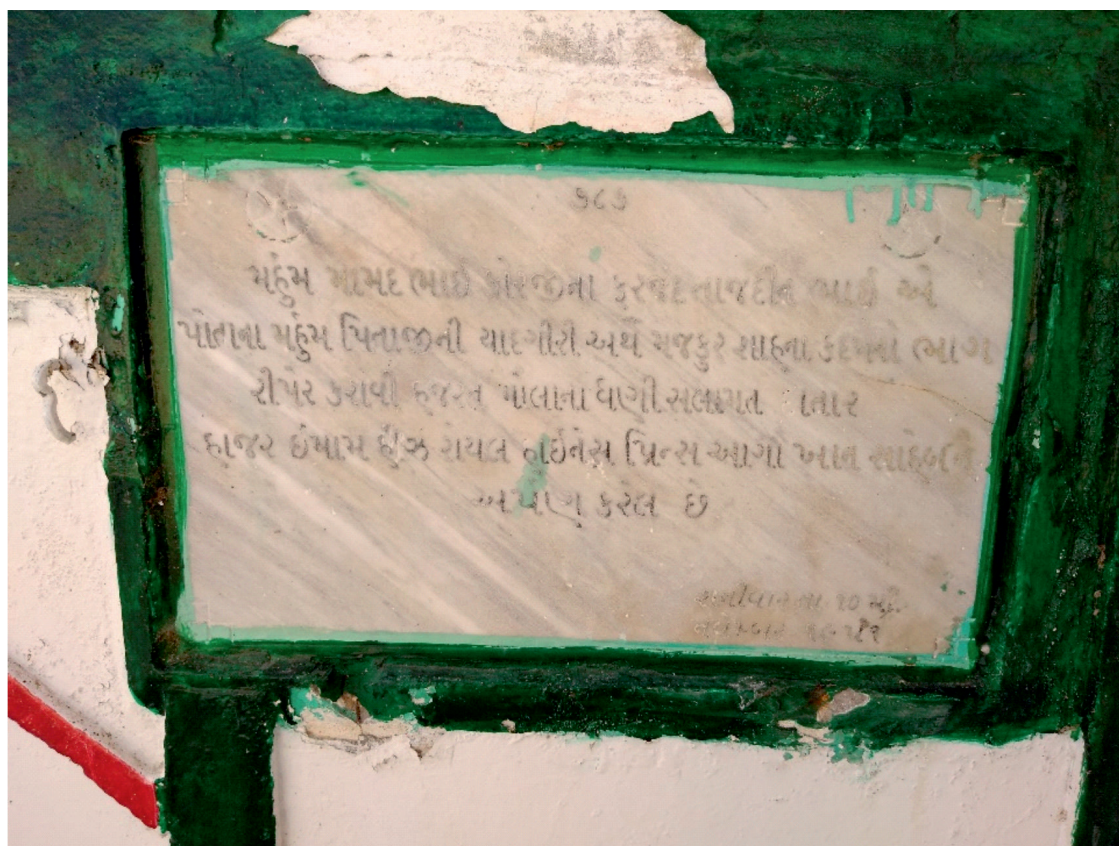 ૭૮૬
મર્હુમ મામદ ભાઈ કોરજીના ફરજંદ તાજદીન ભાઈ એ
પોતાના મર્હુમ પિતાજીની યાદગીરી અર્થે મજકુર શાહના કદમનો ભાગ
રીપેર કરાવી હજરત મૌલાના ધણી સલામત દાતાર
હાજર ઈમામ હીઝ રોયલ હાઈનેસ પ્રિન્સ આગા ખાન સાહેબને
અર્પણ કરેલ છે
શનીવાર તા ૧૦ મી